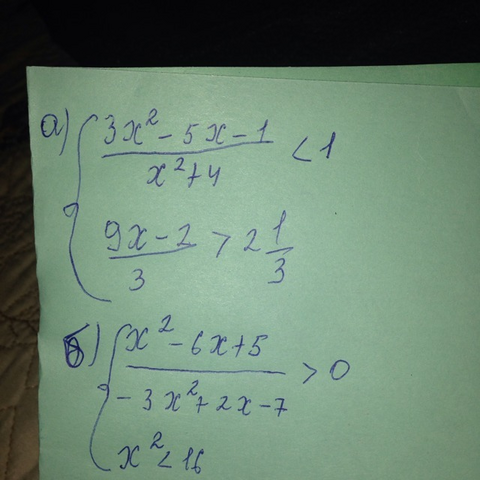 а) { (3x² - 5x - 1)/(x² + 4) < 1
(9x - 2)/3 > 2 1/3
б) { (x² - 6x + 5)/(-3x² + 2x - 7) > 0
x² < 16